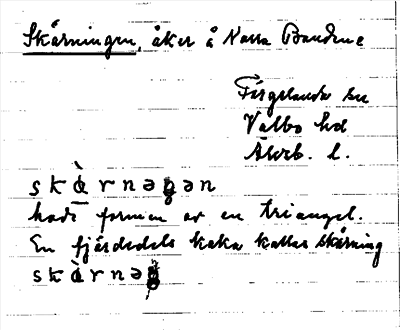 Skårningen, åker å Norra Bondene
Färgelanda sn
Valbo hd
Älvsb. l.
skὰrnəgən
hade formen av en triangel.
En fjärdedels kaka kallas skårning
skὰrnəg